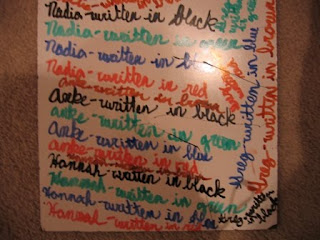 Nadia-written in black
Nadia-written in green
Nadia-written in
Nadia-written in red
Anke-written in brown
Anke-written in black
anke-written in green
Anke-written in blue
anke-written in red
Hannah-written in black
Hannah-written in green
Hannah-written in blue
Hannah-written in red
Greg-written in blue
Greg-written in brown
Greg-written
black